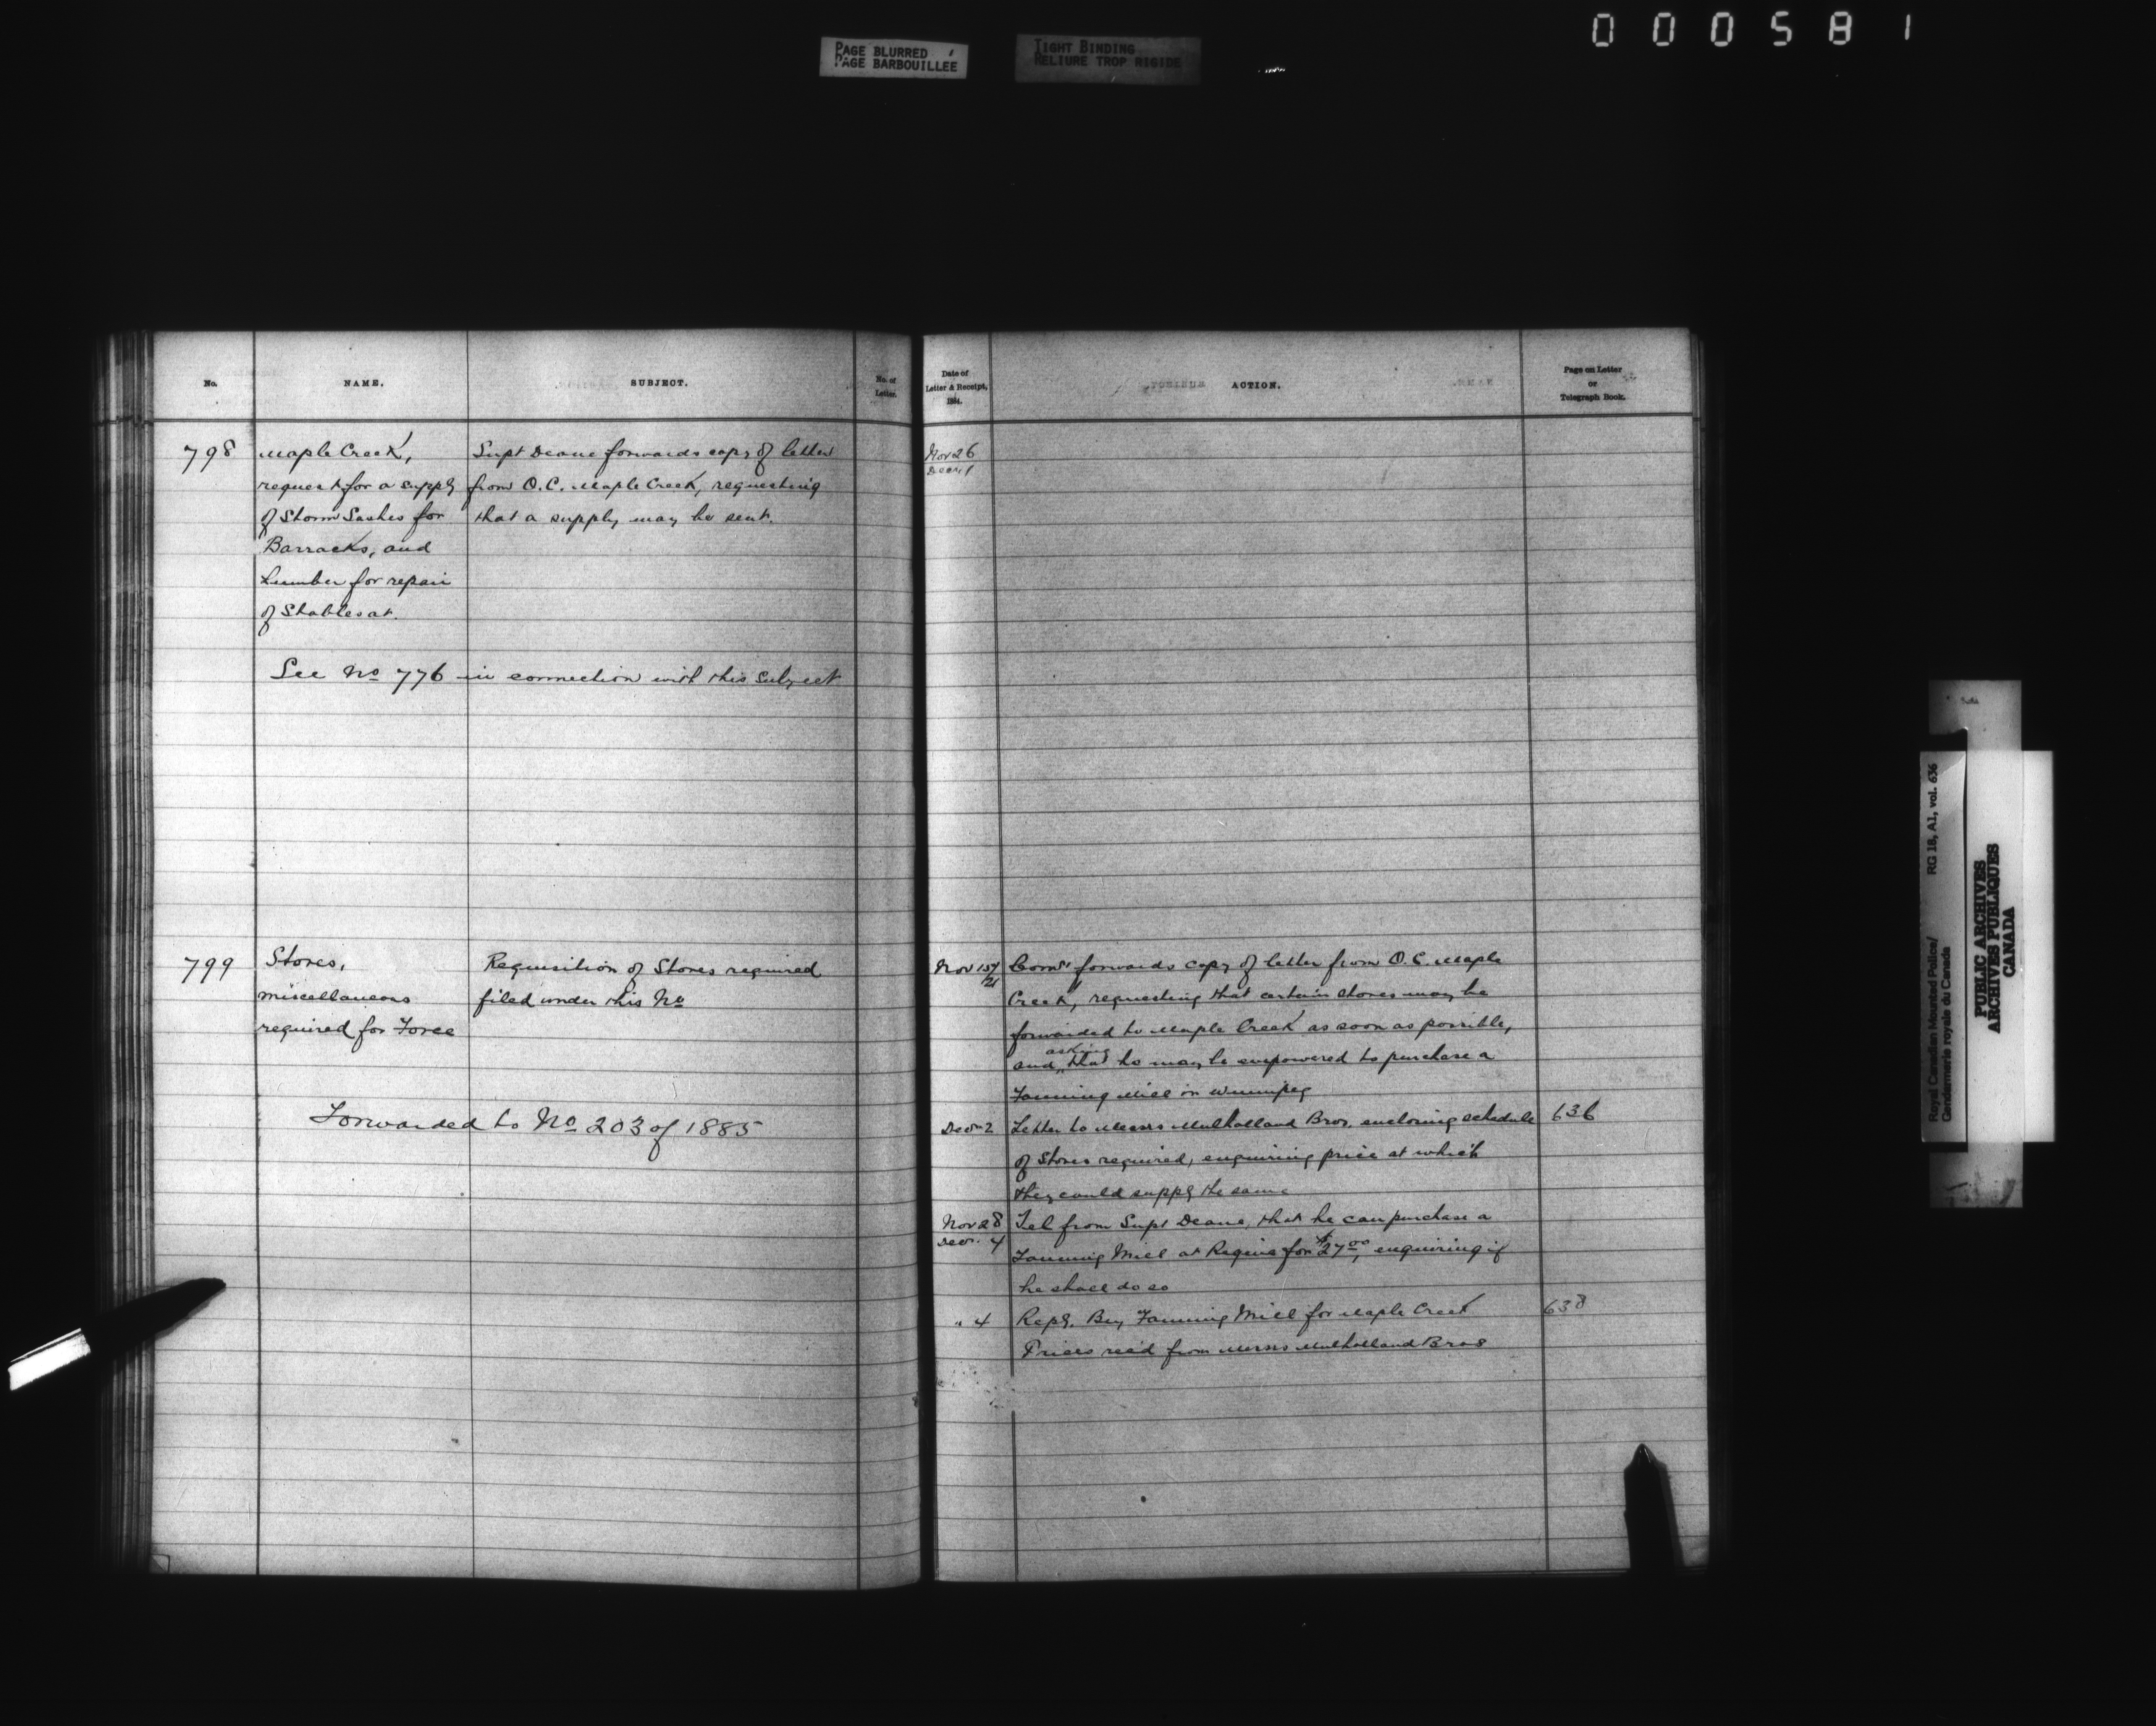 000581
PAGE BLURRED
PAGE BARBOUILLEE
TIGHT BINDING
RELIURE TROP RIGIDE
No.
NAME.
SUBJECT.
No. of
Letter.
798
Maple Creek,
request for a supply
of Storm Sashes for
Barracks, and
Lumber for repair
of Stables at.
Supt Deane forwards copy of letter
from O.C. Maple Creek, requesting
that a supply may be sent.
See No 776 in connection with this subject
799
Stores,
miscellaneous
required for Force
Requisition of Stores required
filed under this No
Forwarded to No 203 of 1885
Date of
Letter & Receipt,
1884.
ACTION.
Page on Letter
or
Telegraph Book.
Nov 26
Decr 1
Nov 15/21
Comr forwards copy of letter from O.C. Maple
Creek, requesting that certain stores may be
forwarded to Maple Creek as soon as possible,
and asking that he may be empowered to purchase a
Fanning Mill in Winnipeg
Decr 2
Letter to Messrs Mulholland Bros, enclosing schedule
636
of Stores required, enquiring price at which
they could supply the same
Nov 28
Decr. 4
Tel from Supt Deane, that he can purchase a
Fanning Mill at Regina for $27.00, enquiring if
he shall do so
" 4
Reply. Buy Fanning Mill for Maple Creek
638
Prices rec'd from Messrs Mulholland Bros
Royal Canadian Mounted Police/
Gendarmerie royale du Canada
RG 18, A1, vol. 636
PUBLIC ARCHIVES
ARCHIVES PUBLIQUES
CANADA